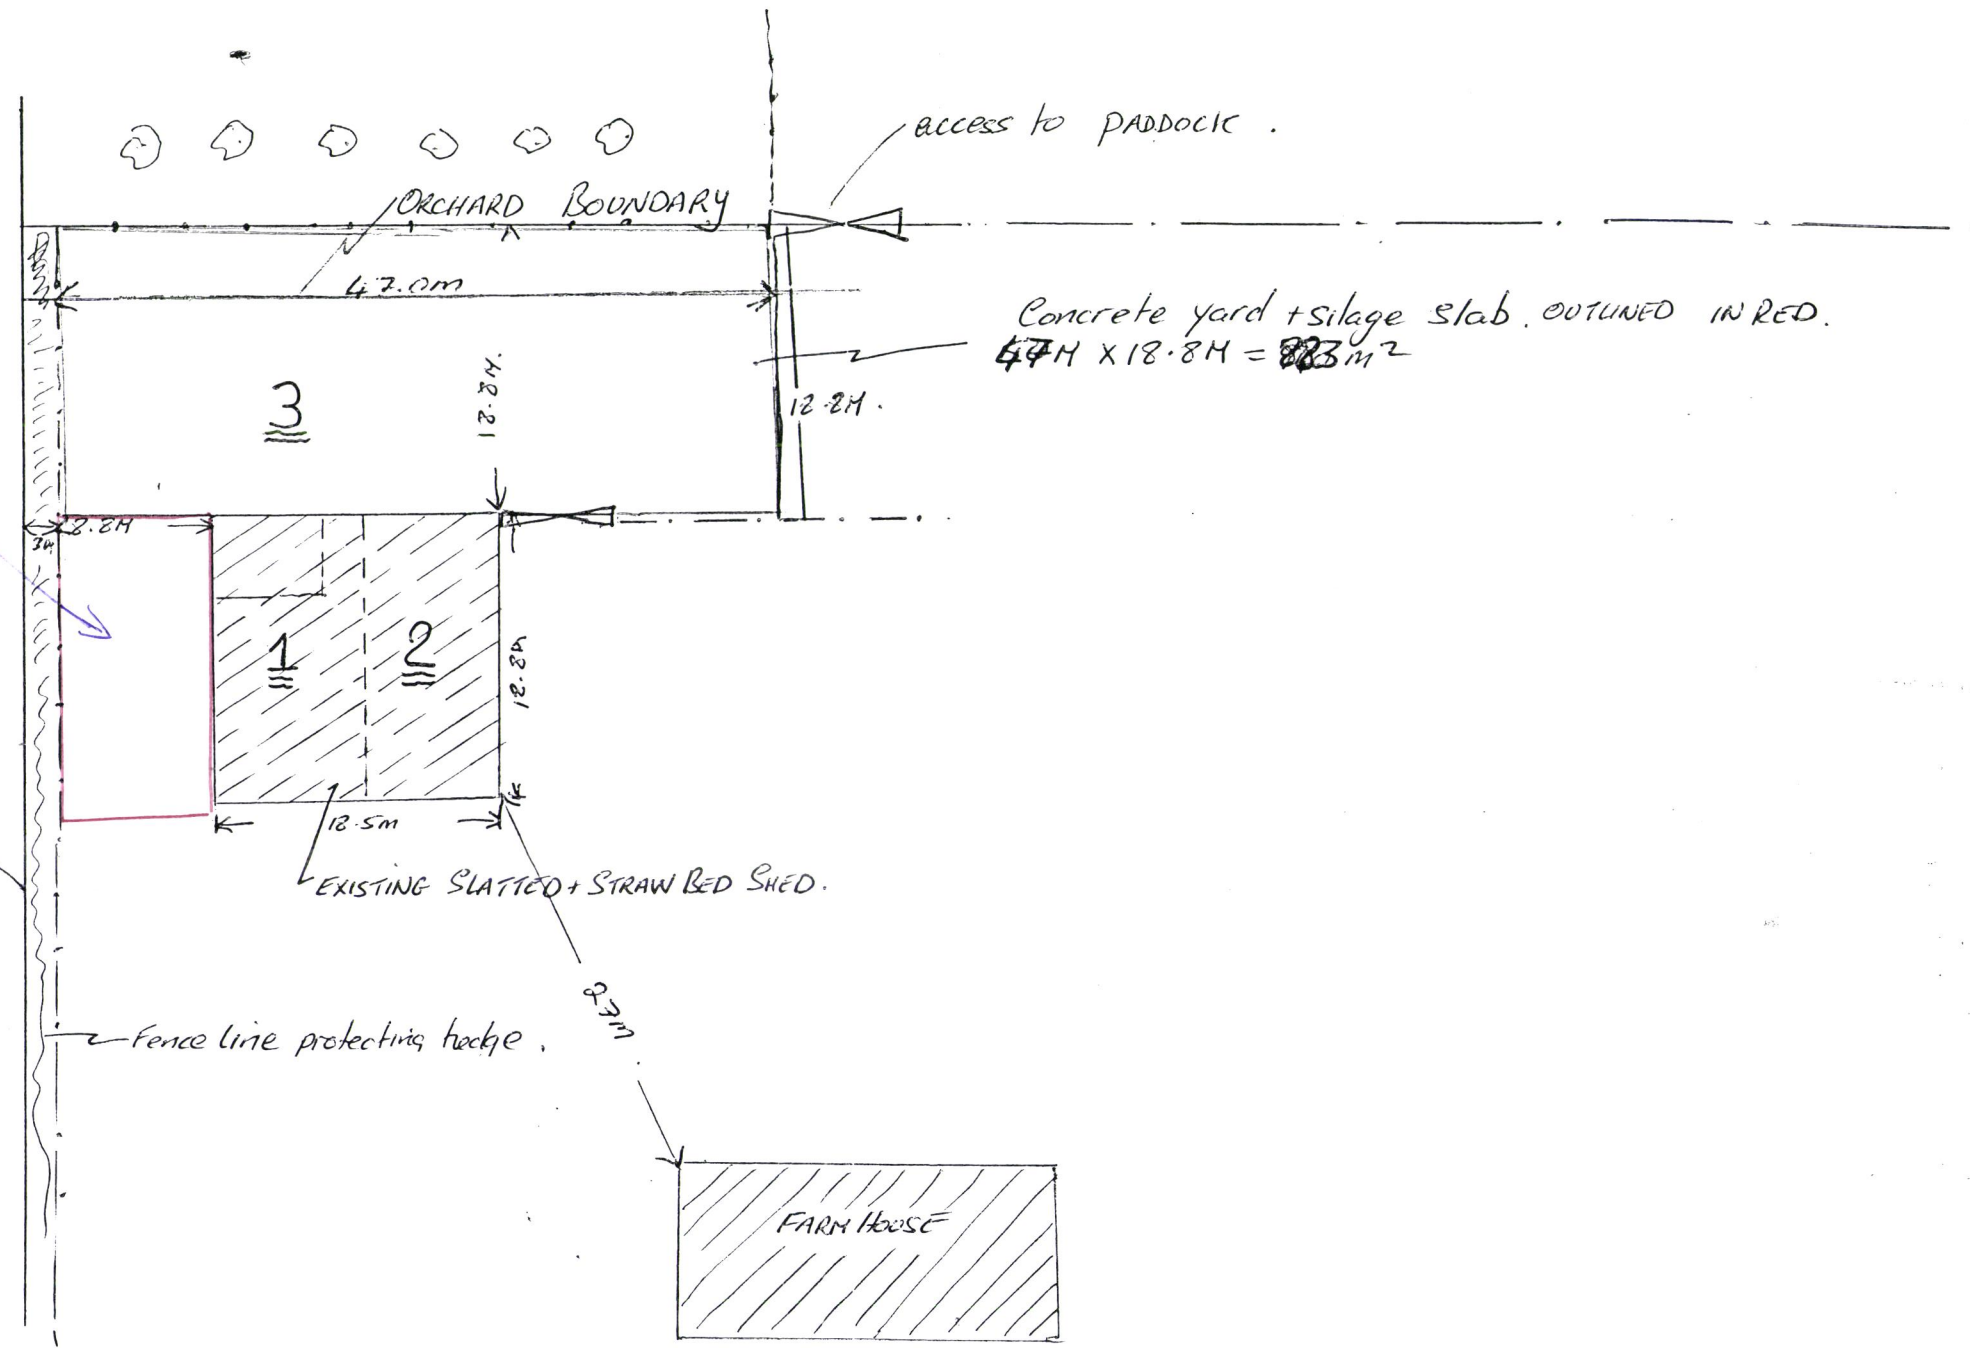 access to PADDOCK.
ORCHARD BOUNDARY
47.0m
Concrete yard + silage slab. OUTLINED IN RED.
47M X 18.8M = 883m²
3
18.8M.
3M
1
2
18.8M
18.5m
EXISTING SLATTED + STRAW BED SHED.
Fence line protecting hedge.
FARM HOUSE